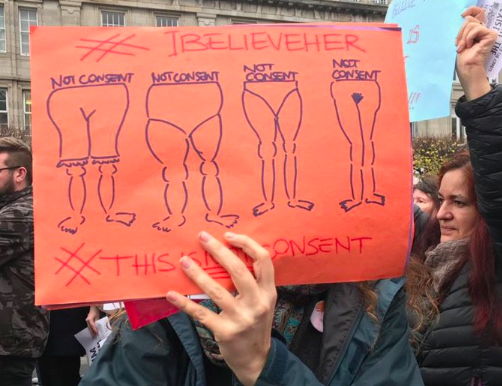 # IBELIEVEHER
NOT CONSENT
NOT CONSENT
NOT
CONSENT
NOT
CONSENT
# THIS CONSENT